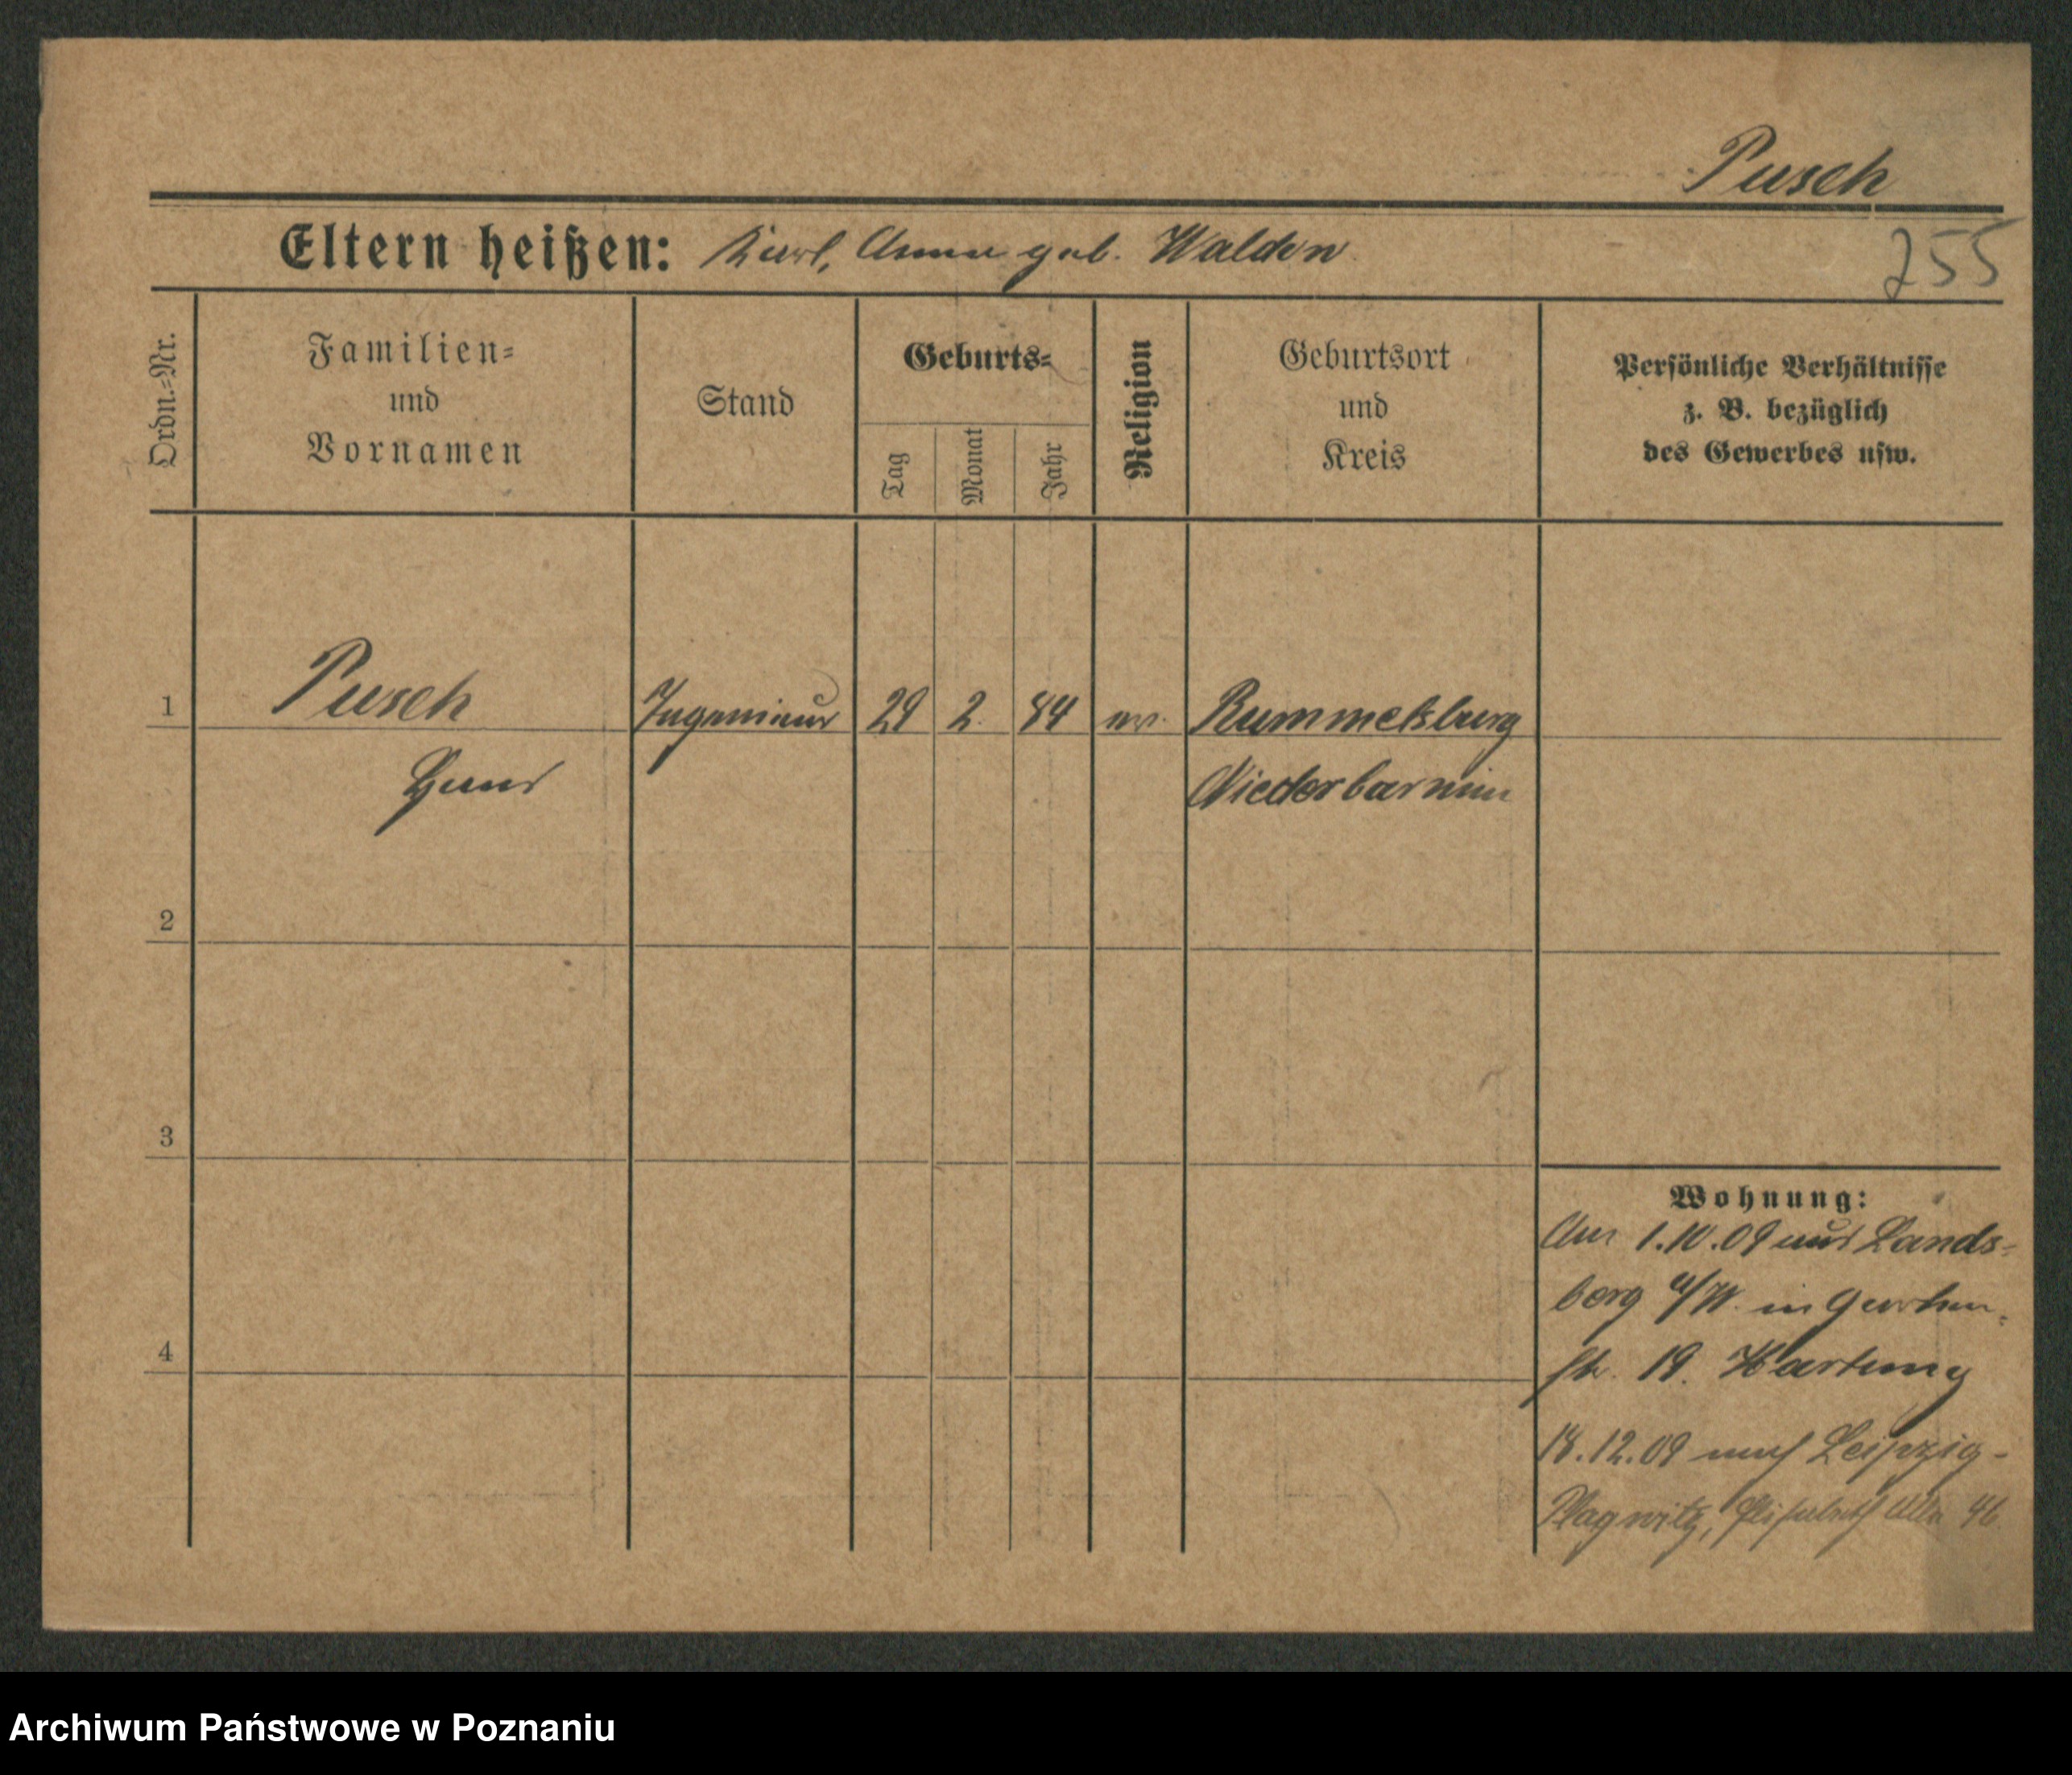 Pusch
255
Eltern heißen: Karl, Anna geb. Walden
Ordn.-Nr.
Familien-
und
Vornamen
Stand
Geburts-
Tag
Monat
Jahr
Religion
Geburtsort
und
Kreis
Persönliche Verhältnisse
z. B. bezüglich
des Gewerbes usw.
1 Pusch Ingenieur 29 2. 84 ev. Rummelsburg
Hans Niederbarnim
2
3
4
Wohnung:
Am 1.10.09 aus Lands-
berg a/W. in Garten-
str. 19. Hartung
18.12.09 nach Leipzig-
Plagwitz, Elisabeth Allee 46
Archiwum Państwowe w Poznaniu